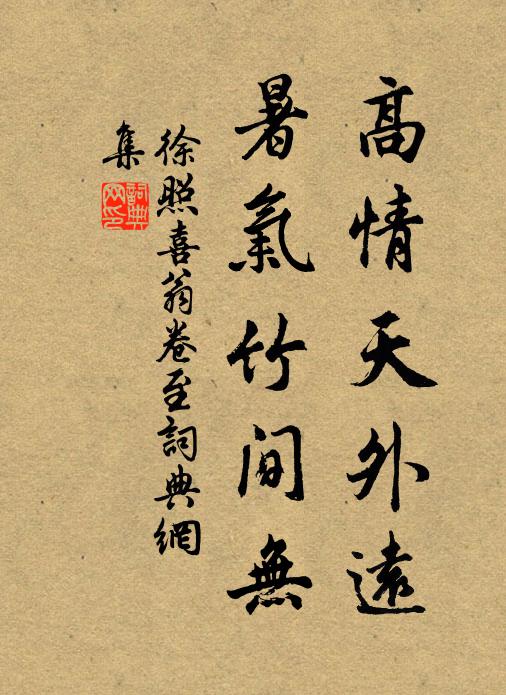 高情天外遠
暑氣竹間無
徐照喜翁卷至詞典網
集
詞典网印